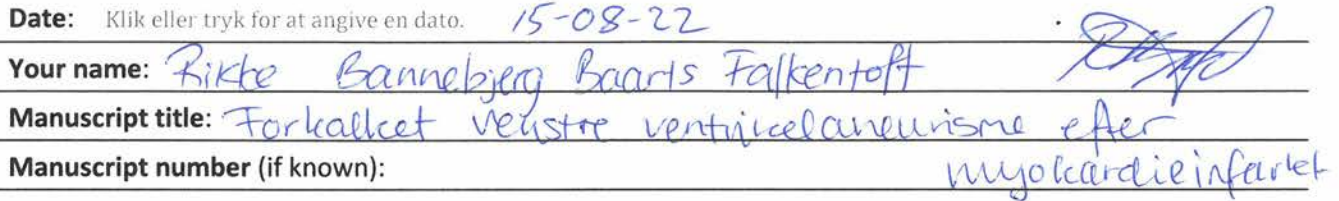 Date: Klik eller tryk for at angive en dato. 15-08-22
Your name: Rikke Bannebjerg Baarts Falkentoft
Manuscript title: Forkalket venstre ventrikelaneurisme efter
Manuscript number (if known): myokardieinfarkt